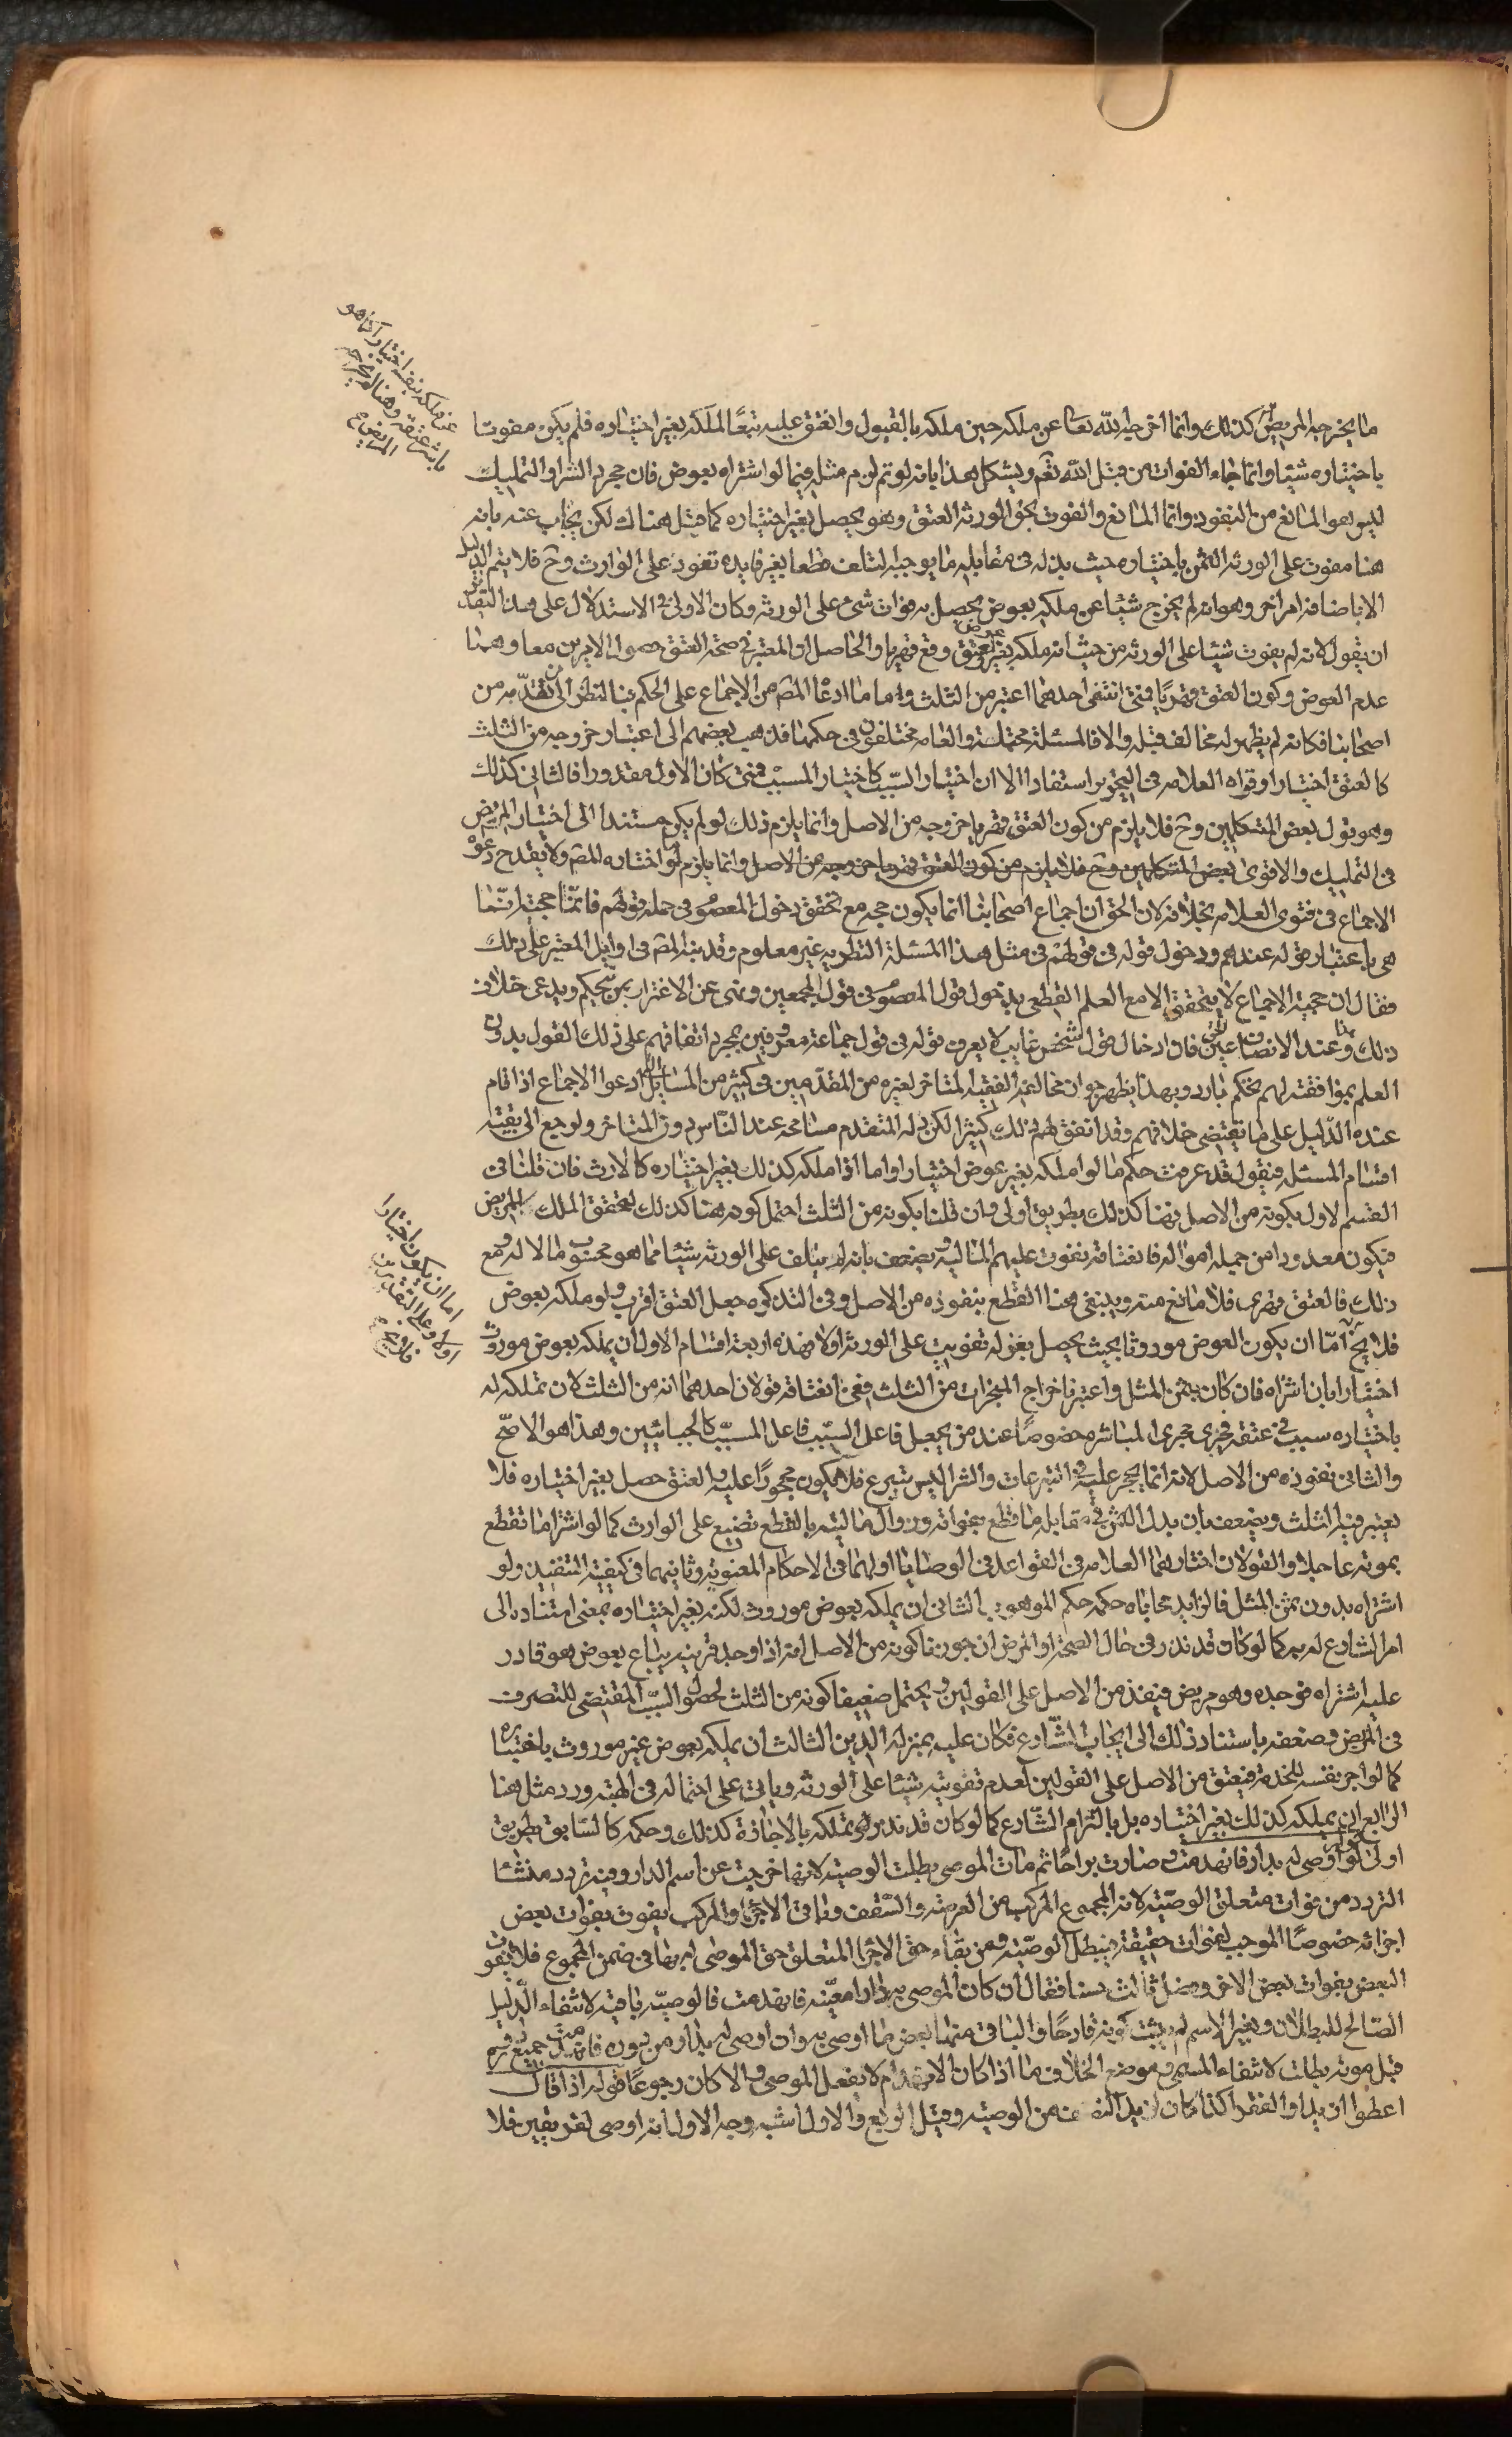 ما يخرجه المريض كذلك وانما اخرجه الله تعا عن ملكه حين ملكه بالقبول وانعتق عليه تبعًا لملكه بغير اختياره فلم يكن مفوتا
باختياره شيئا وانما جاء الفوات من قبل الله تعم ويشكل هذا بانه لو تم لزم مثله فيما لو اشتراه بعوض فان مجرد الشرا والتمليك
ليس هو المانع من النفوذ وانما المانع والمفوت بحق الورثه العتق وهو يحصل بغير اختياره كما قيل هناك لكن يجاب عنه بانه
هنا مفوت على الورثه الثمن باختياره حيث بذله في مقابله ما يوجب التلف قطعا بغير فايده تعود على الوارث وح فلا يتم الدليل
الا باضافه امر اخر وهو انه لم يخرج شيئا عن ملكه بعوض يحصل به فوات شئ على الورثه وكان الاولى في الاستدلال على هذا التقدير
ان يقول لانه لم يفوت شيئا على الورثه من حيث انه ملكه بغير عوض والعتق وقع قهريا والحاصل ان المعتبر في صحه العتق حصول الامرين معا وهما
عدم العوض وكون العتق قهريا فمتى انتفى احدهما اعتبر من الثلث واما ما ادعاه المصً من الاجماع على الحكم بالنظر الى من تقدمه من
اصحابنا فكانه لم يظهر له مخالف قبله والا فالمسئلة محتملة والعامه مختلفون في حكمها فذهب بعضهم الى اعتبار خروجه من الثلث
كالعتق اختيارا وقواه العلامه في التحرير استنادا الا ان اختيار السبب كاختيار المسبب فمتى كان الاول مقدورا فالثاني كذلك
وهو قول بعض المتكلمين وح فلا يلزم من كون العتق قهريا خروجه من الاصل وانما يلزم ذلك لو لم يكن مستندا الى اختيار المريض
في التمليك والاقوى بعض المتكلمين وح فلا يلزم من كون العتق قهريا خروجه من الاصل وانما يلزم لو اختاره المصً ولا يقدح دعوه
الاجماع في فتوى العلامه بخلافه لان الحق ان اجماع اصحابنا انما يكون حجه مع تحقق دخول المعصوم في جمله قولهم فان حجيته انما
هي باعتبار قوله عندهم ودخول قوله في قولهم في مثل هذا المسئلة النظريه غير معلوم وقد نبه المصً في اوايل المعتبر على ذلك
فقال ان حجية الاجماع لا يتحقق الا مع العلم القطعي بدخول قول المعصوم في قول المجمعين ونهى عن الاغترار بمن يتحكم ويدعى خلاف
ذلك وعند الانصاف فان ادخال قول شخص غايب لا يعرف قوله في قول جماعة معروفين بمجرد اتفاقهم على ذلك القول بدون
العلم بموافقته لهم تحكم بارد وبهذا يظهر جواز مخالفه الفقيه المتاخر لغيره من المتقدمين في كثير من المسايل التي ادعوا الاجماع اذا قام
عنده الدليل على ما يقتضى خلافهم وقد اتفق لهم ذلك كثيرا لكن زلة المتقدم مسامحه عند الناس دون المتاخر ولنرجع الى بقية
اقسام المسئله فنقول قد عرفت حكم ما لو املكه بغير عوض اختيارا واما اذا ملكه كذلك بغير اختياره كالارث فان قلنا في
القسم الاول بكونه من الاصل فهنا كذلك بطريق اولى وان قلنا بكونه من الثلث احتمل كونه هنا كذلك لتحقق الملك للمريض
فيكون معدودا من جمله امواله فانعتاقه تفوت عليهم الماليه ويضعف بانه لم يتلف على الورثه شيئا مما هو محسوب مالا له ومع
ذلك فالعتق قهرى فلا مانع منه وينبغي هنا القطع بنفوذه من الاصل وفي التذكره جعل العتق اقرب ولو ملكه بعوض
فلا يخ اما ان يكون العوض موروثا بحيث يحصل بعزله تفويت على الورثه اولا فهذه اربعة اقسام الاول ان يملكه بعوض موروث
اختيارا بان اشتراه فان كان بثمن المثل واعتبرنا خراج المنجزات من الثلث ففى انعتاقه قولان احدهما انه من الثلث لان تملكه له
باختياره سبب في عتقه فجرى مجرى المباشره خصوصًا عند من يجعل فاعل السبب فاعل المسبب كالجبائيين وهذا هو الاصح
والثاني نفوذه من الاصل لانه انما يحجر عليه في التبرعات والشرا ليس تبرع فلا يكون محجورًا عليه والعتق حصل بغير اختياره فلا
يعتبر فيه الثلث ويضعف بان بدل الثمن في مقابله ما قطع بفواته وزوال ماليته بالقطع تضييع على الوارث كما لو اشترا ما تقطع
بموته عاجلا والقولان اختارهما العلامه في القواعد في الوصايا اولهما في الاحكام المعنويه وثانيهما في كيفيه التنفيذ ولو
اشتراه بدون ثمن المثل فالزايد محاباه حكمه حكم الموهوب الثاني ان يملكه بعوض موروث لكنه بغير اختياره بمعنى استناده الى
امر الشارع له به كما لو كان قد نذر في حال الصحة او المرض ان جوزنا كونه من الاصل انه اذا وجد قريبه يباع بعوض هو قادر
عليه اشتراه فوجده وهو مريض فينفذ من الاصل على القولين ويحتمل ضعيفا كونه من الثلث لحصول السبب المقتضى للتصرف
في المرض وضعفه باستناد ذلك الى ايجاب الشارع فكان عليه بمنزله الدين الثالث ان يملكه بعوض غير موروث باختياره
كما لو اجر نفسه للخدمة فينعتق من الاصل على القولين لعدم تفويته شيئا على الورثه وياتى على احتماله في الهبه ورد مثل هنا
الرابع ان يملكه كذلك بغير اختياره بل بالتزام الشارع كما لو كان قد نذر تملكه بالاجازة كذلك وحكمه كالسابق بطريق
اولى قوله لو اوصى له بدار فانهدمت وصارت براحًا ثم مات الموصي بطلت الوصيه لانها خرجت عن اسم الدار وفيه تردد منشئا
التردد من فوات متعلق الوصيه لانه المجموع المركب من العرصه والسقف وباقى الاجزا والمركب يفوت بفوات بعض
اجزائه خصوصًا الموجب لفوات حقيقته فيبطل الوصيه ومن بقاء حق الاجزا المتعلق حق الموصى له بها في ضمن المجموع فلا يفوت
البعض بفوات بعض الاخر وفصل ثالث حسنا فقال ان كان الموصى به دارا معينه فانهدمت فالوصيه باقيه لانتفاء الدليل
الصالح للبطلان وتغير الاسم لم يثبت كونه قادحًا والباقى منها بعض ما اوصى به وان اوصى له بدار من دوره فانهدمت جميع دوره
قبل موته بطلت لانتفاء المسمى وموضع الخلاف ما اذا كان الانهدام لا بفعل الموصى والا كان رجوعًا قوله اذا قال
اعطوا زيدا والفقرا كذا كان لزيد النصف من الوصيه وقيل الربع والاول اشبه وجه الاول انه اوصى لفريقين فلا